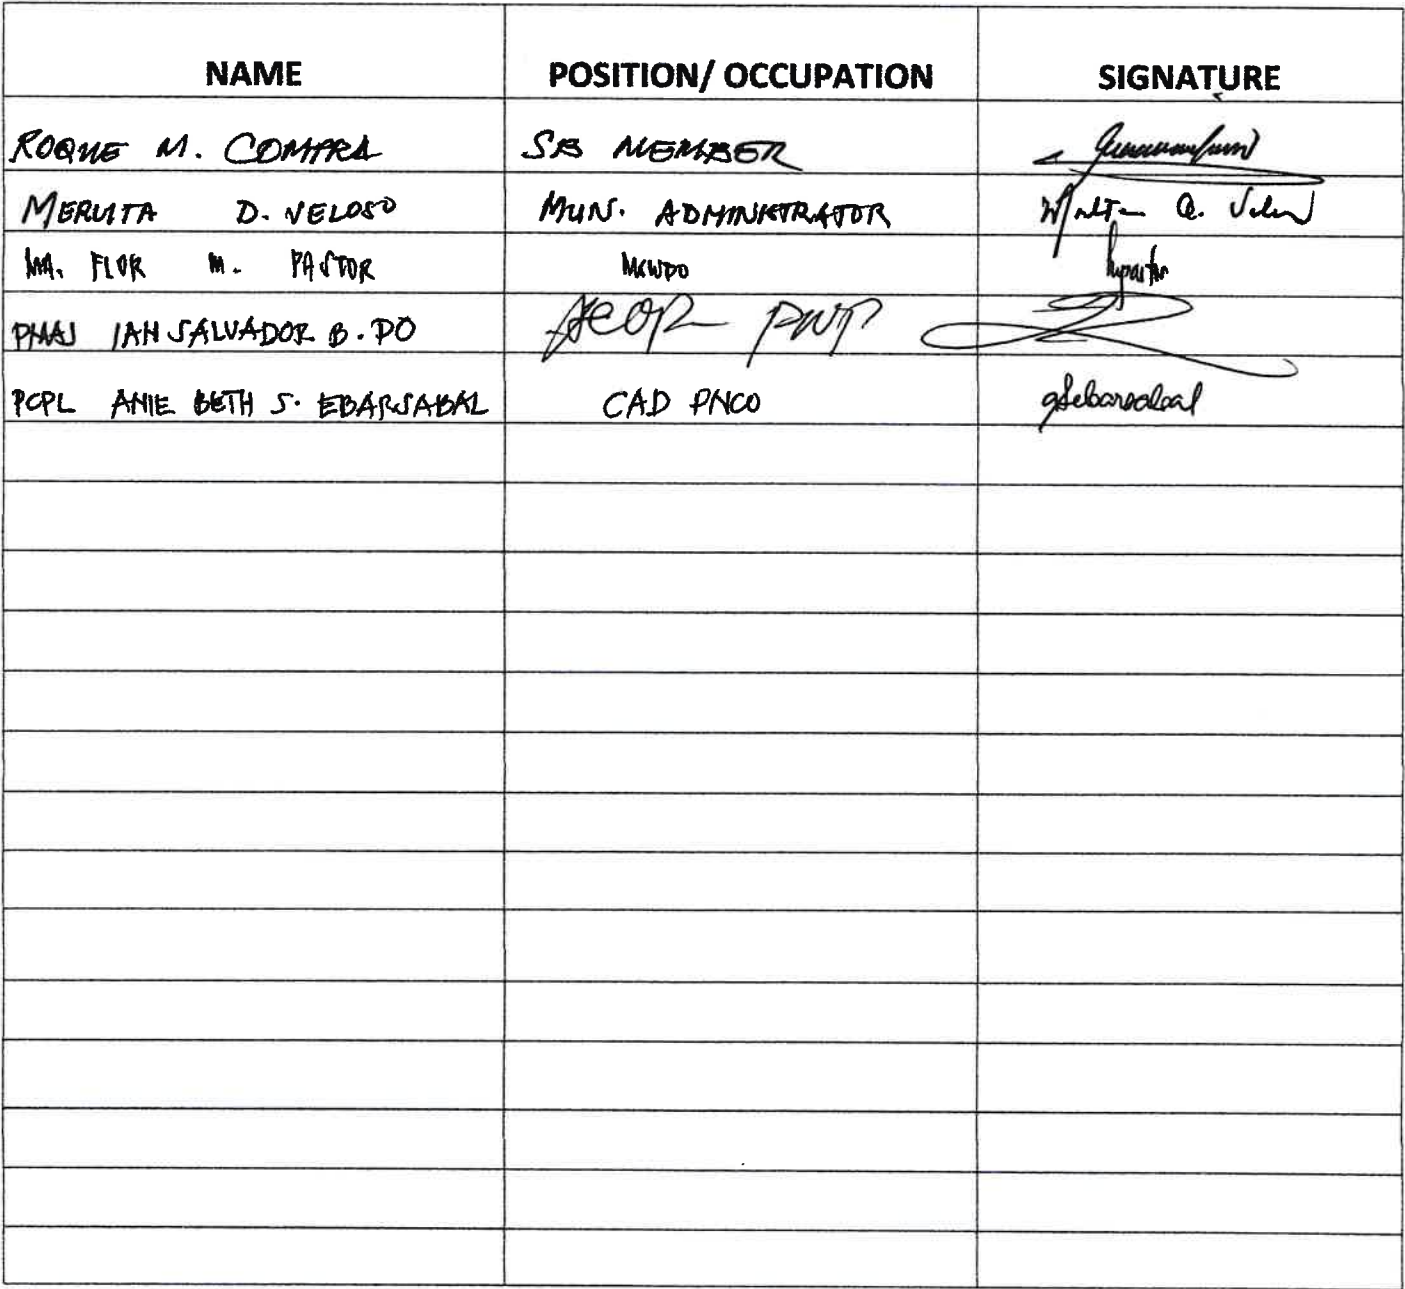 NAME POSITION/ OCCUPATION SIGNATURE
ROQUE M. COMPRA SB MEMBER
MERLITA D. VELOSO MUN. ADMINISTRATOR
MA. FLOR M. PASTOR MSWDO
PMAJ IAN SALVADOR B. PO ACOP PNP
PCPL ANIE BETH S. EBARSABAL CAD PNCO